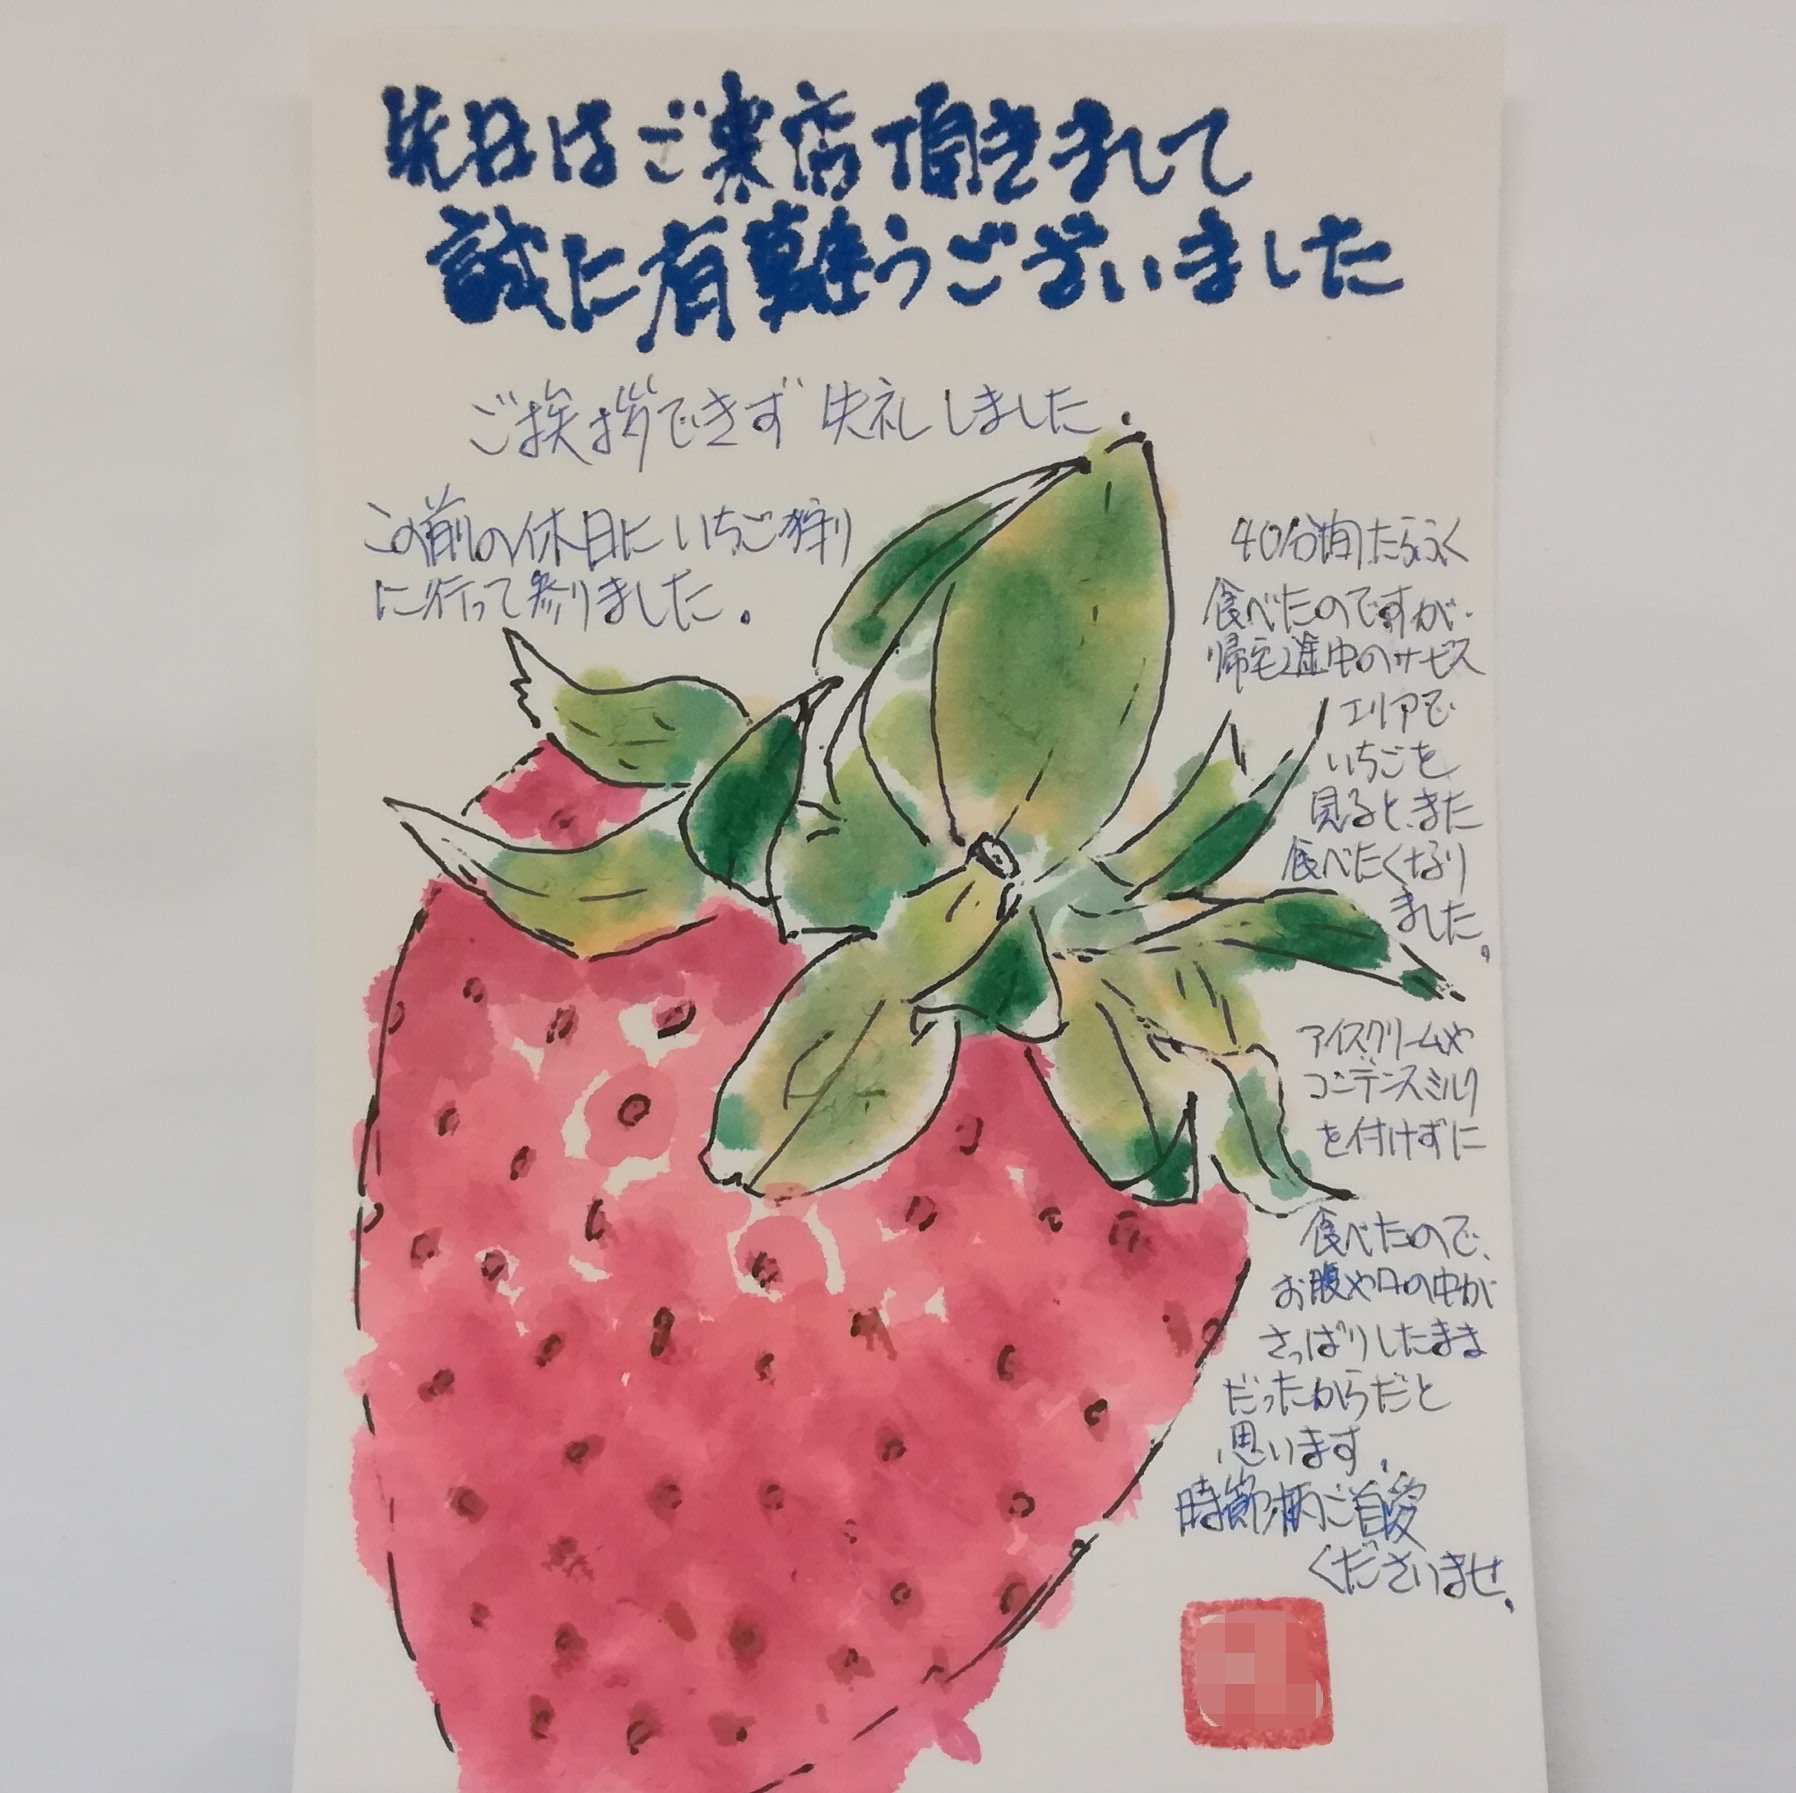 先日はご来店頂きまして
誠に有難うございました
ご挨拶できず失礼しました。
この前の休日にいちご狩り
に行って参りました。
40分間たらふく
食べたのですが、
帰宅途中のサービス
エリアで
いちごを
見ると、また
食べたくなり
ました。
アイスクリームや
コンデンスミルク
を付けずに
食べたので、
お腹や口の中が
さっぱりしたまま
だったからだと
思います。
時節柄ご自愛
くださいませ。